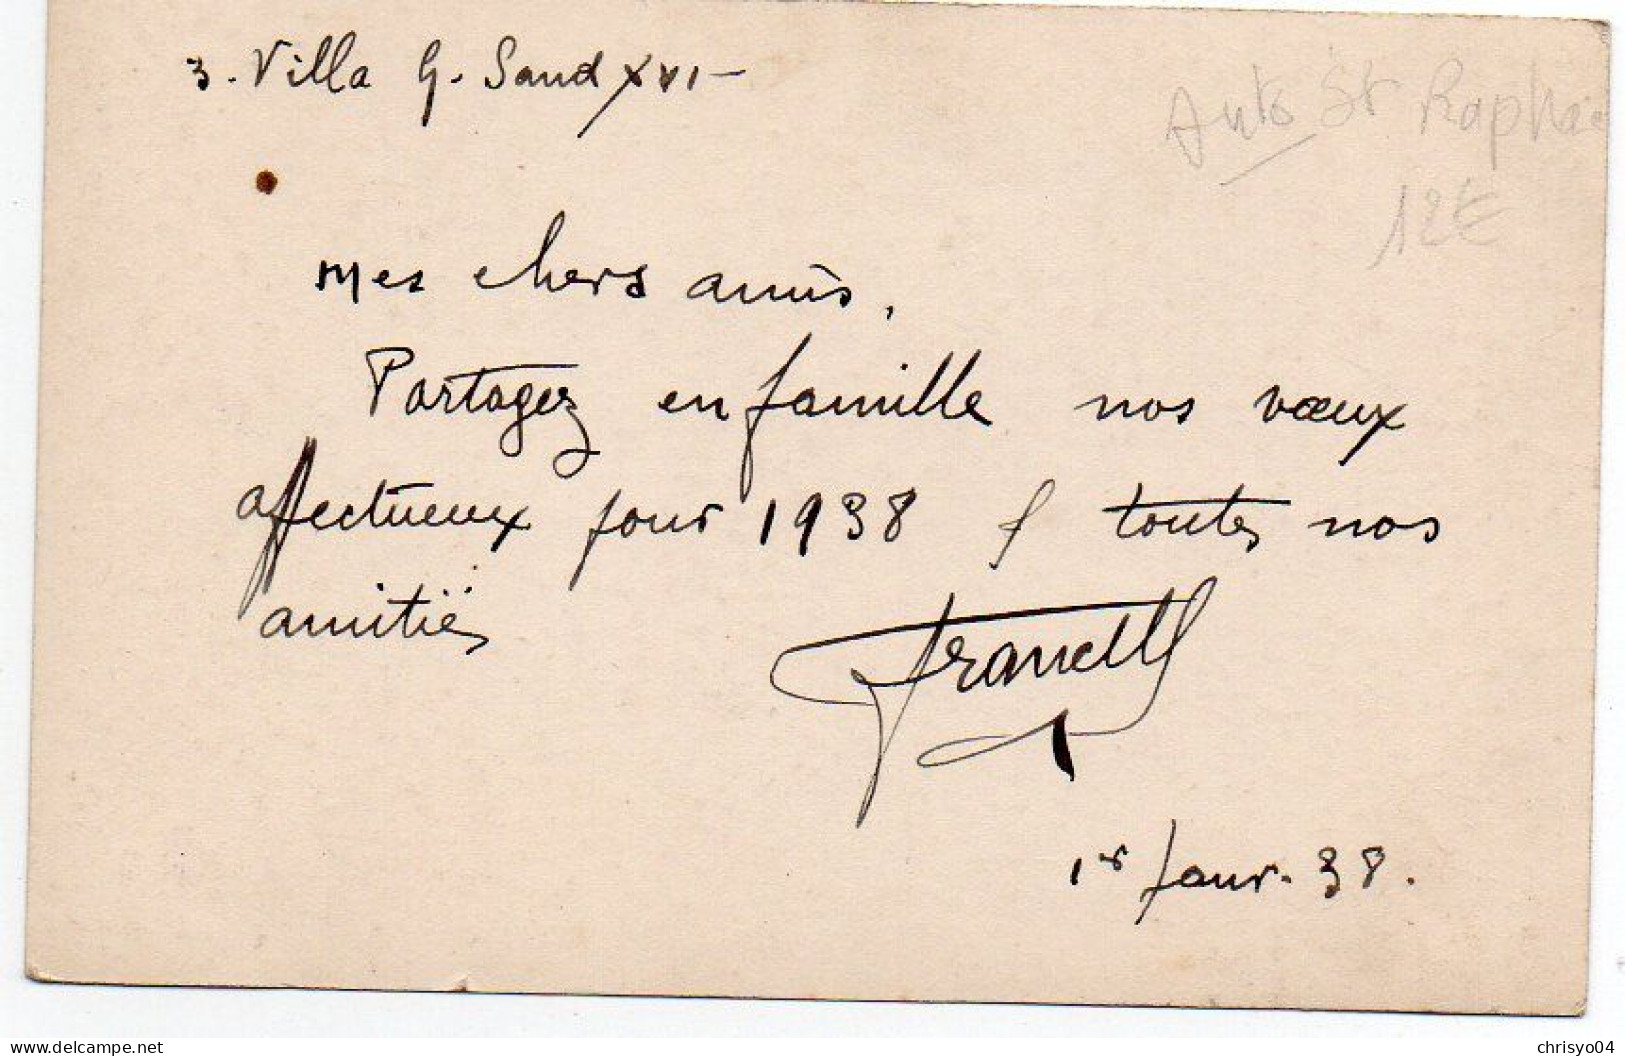 3. Villa G. Sand XVI –
Auto St Raphaë
12€
Mes chers amis,
Partagez en famille nos vœux
affectueux pour 1938 & toutes nos
amitiés
1er Janv. 38.
www.delcampe.net
chrisyo04